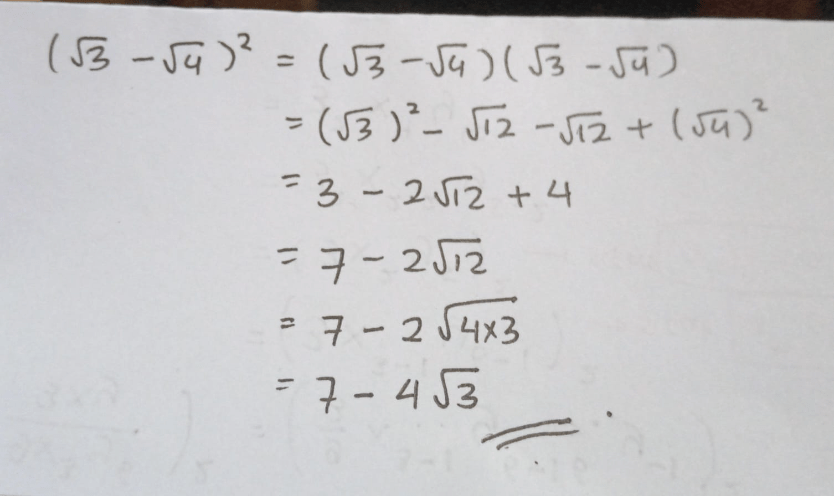 (√3 − √4)² = (√3 − √4)(√3 − √4)
= (√3)² − √12 − √12 + (√4)²
= 3 − 2√12 + 4
= 7 − 2√12
= 7 − 2√(4×3)
= 7 − 4√3